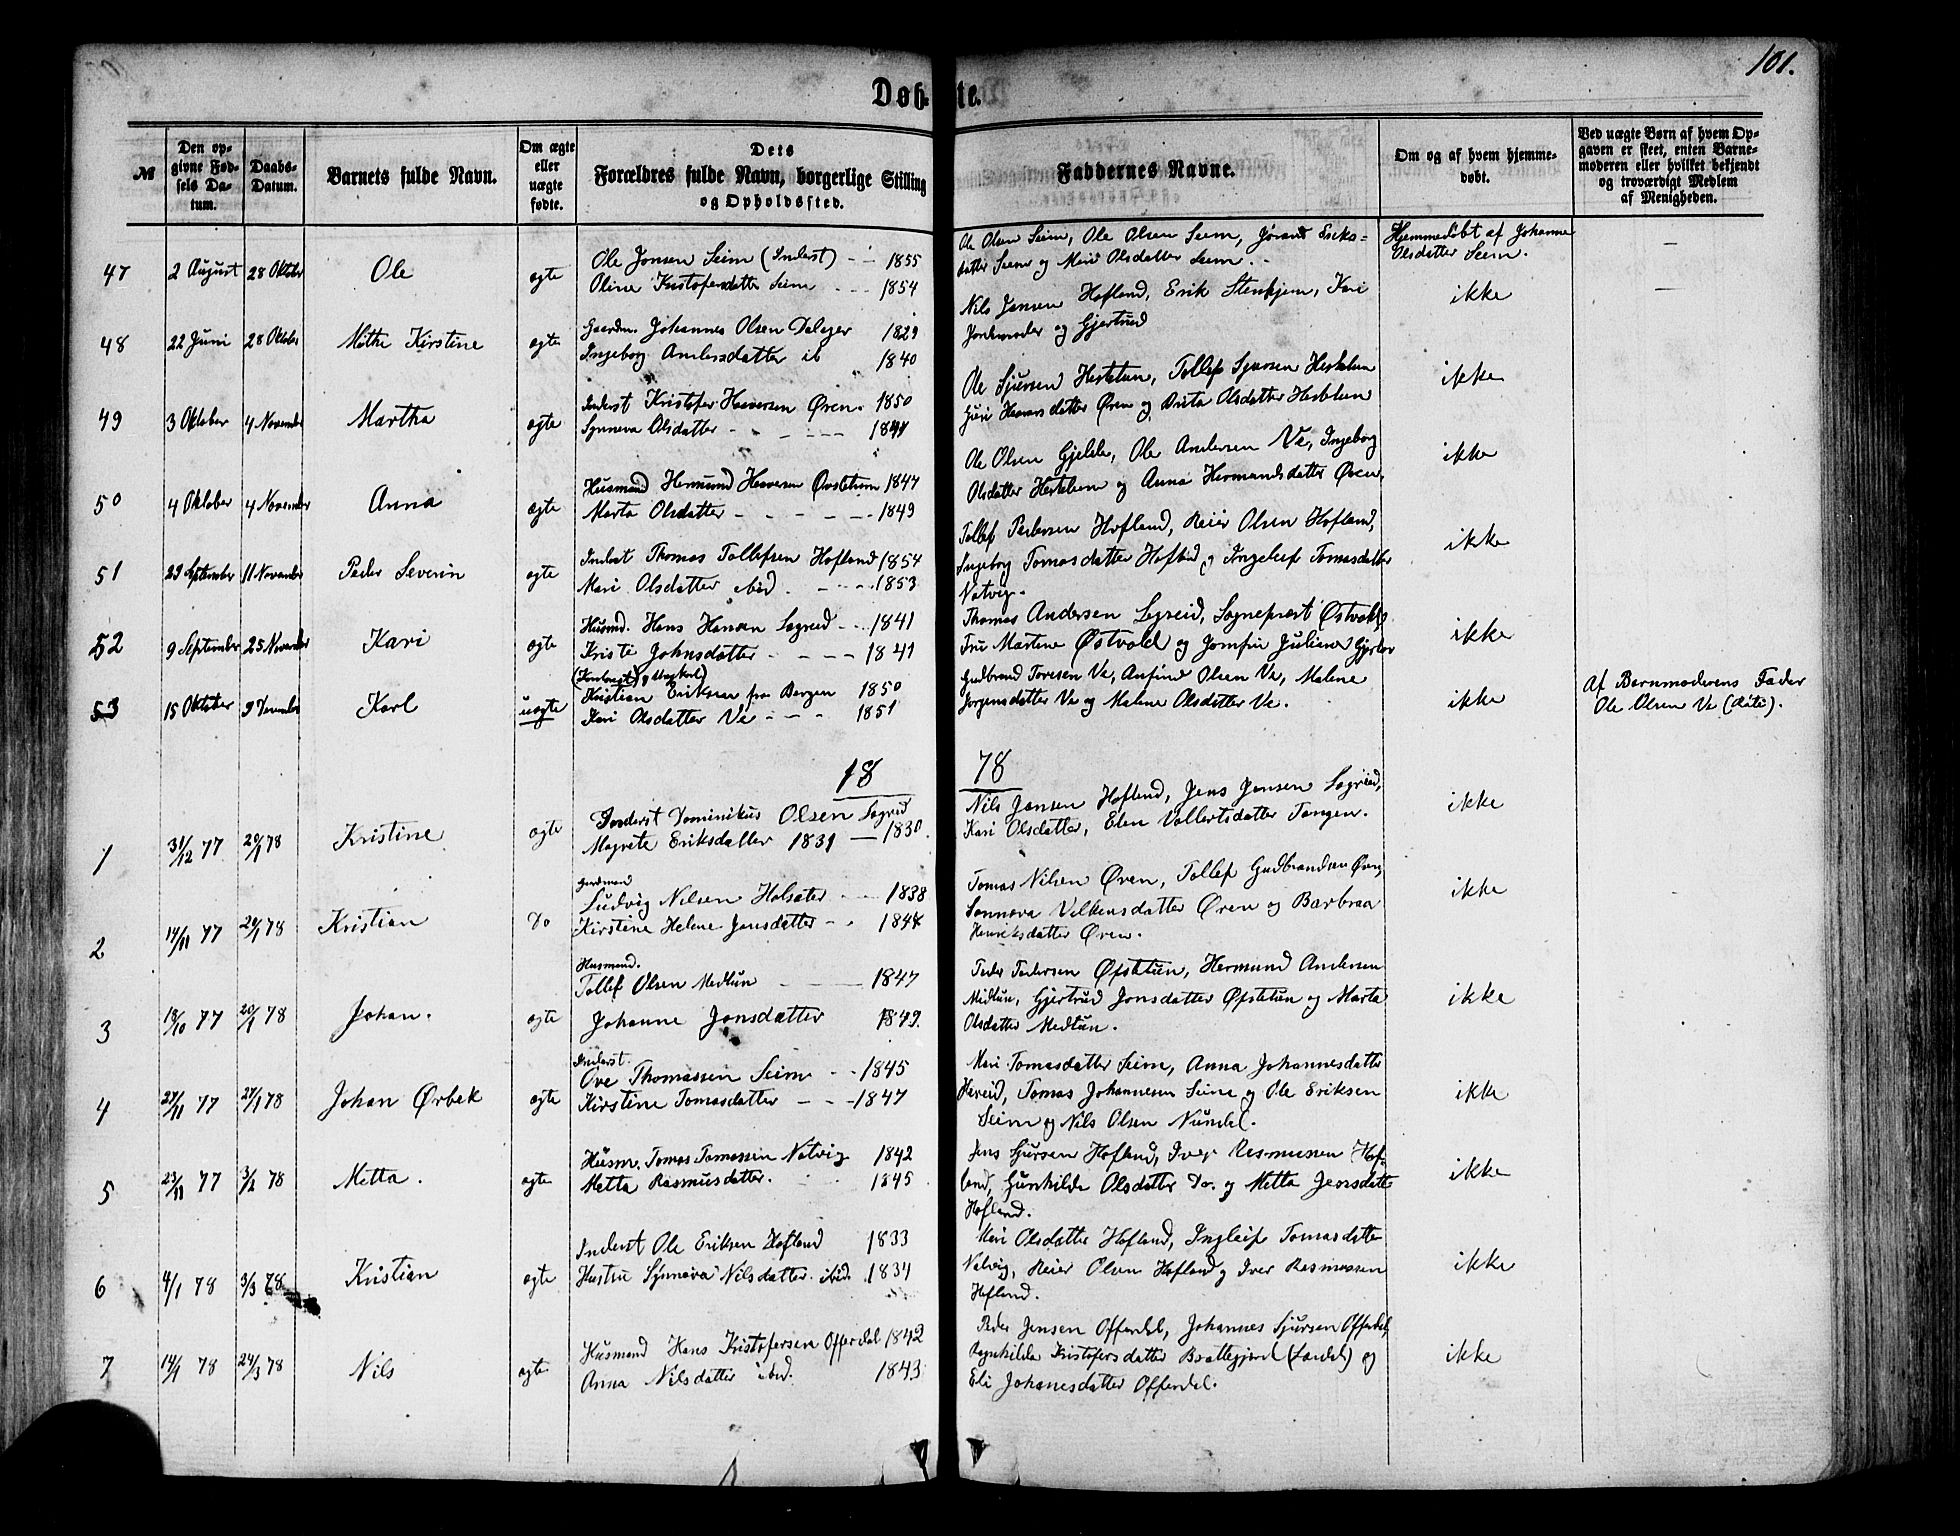 101.
Døbte.
№
Den opgivne Fødsels Datum.
Daabs-Datum.
Barnets fulde Navn.
Om ægte eller uægte fødte.
Dets Forældres fulde Navn, borgerlige Stilling og Opholdssted.
Faddernes Navne.
Om og af hvem hjemmedøbt.
Ved uægte Børn af hvem Opgaven er skeet, enten Barnemoderen eller hvilket bekjendt og troværdigt Medlem af Menigheden.
47 2 August 28 Oktober Ole ægte
Ole Jonsen Seim (Inderst) - - 1855
Oline Kristofersdatter Seim - - 1854
Ole Olsen Seim, Ole Olsen Seim, Eriks-
datter Seim og Mari Olsdatter Seim.
Hjemmedøbt af Johanne
Olsdatter Seim.
48 22 Juni 28 Oktober Mithe Kirstine ægte
Gaardm. Johannes Olsen Dalager 1829
Ingeborg Andersdatter ib 1840
Nils Jansen Hofland, Erik Stenhjem, Kari
Jordemoder og Gjertrud
ikke
49 3 Oktober 4 November Martha ægte
Inderst Kristofer Haversen Øren. 1850
Synneva Olsdatter - - - -
Ole Sjursen Hestetun, Tollef Sjursen Hestetun
Guri Haversdatter Øren og Brita Olsdatter Hestetun
ikke
50 4 Oktober 4 November Anna ægte
Husmand Hermund Haversen Øvstetun 1847
Marta Olsdatter - - - - - 1849
Ole Olsen Gjelde, Ole Andersen Ve, Ingeborg
Olsdatter Hestetun og Anna Hermundsdatter Øren.
ikke
51 29 September 11 November Peder Severin ægte
Inderst Thomas Tollefsen Hofland 1854
Mari Olsdatter ibid. - - - 1853
Tollef Pedersen Hofland, Reier Olsen Hofland,
Ingeborg Tomasdatter Hofland og Ingeleif Tomasdatter
Natvig.
ikke
52 9 September 25 November Kari ægte
Husmd. Hans Hansen Sogreid - - 1841
Kristi Johnsdatter - - - - 1841
Thomas Andersen Legreid, Sogneprest Østvold,
Fru Martine Østvold og Jomfru Juliane
ikke
53 15 Oktober 9 December Karl uægte
Kristian Eriksen fra Bergen 1850
Kari Olsdatter Ve - - - 1851
Gudbrand Torresen Ve, Anfind Olsen Ve, Malene
Jørgensdatter Ve og Malene Olsdatter Ve.
ikke
Af Barnmoderens Fader
Ole Olsen Ve
18 78
1 31/12 77 20/1 78 Kristine ægte
Inderst Dominikus Olsen Sogreid
Magrete Eriksdatter 1831 - 1830.
Nils Jansen Hofland, Jens Jensen Sogreid,
Kari Olsdatter, Elen Vollertsdatter Tangen.
ikke
2 14/11 77 20/1 78 Kristian Do
Husmand
Ludvig Nilsen Holsæter - - 1838
Kirstine Helene Jensdatter - - 1844
Tomas Nilsen Øren, Tollef Gudbrandsen Øren,
Sønneva Velkensdatter Øren og Barbraa
Henriksdatter Øren.
ikke
3 18/10 77 20/1 78 Johan. ægte
Husmand.
Tollef Olsen Medtun - - - 1847
Johanne Jonsdatter 1849.
Peder Pedersen Øfstetun, Hermund Andersen
Medtun, Gjertrud Jonsdatter Øfstetun og Marta
Olsdatter Medtun.
ikke
4 27/11 77 27/1 78 Johan Ørbek ægte
Inderst.
Ove Thomassen Seim - - 1845
Kirstine Tomasdatter - - - 1847
Mari Tomasdatter Seim, Anna Johannesdatter
Hereid, Tomas Johannesen Seim og Ole Eriksen
Seim og Nils Olsen Nundal.
ikke
5 23/11 77 3/2 78 Metta. ægte
Husm. Tomas Tomassen Natvig 1842
Metta Rasmusdatter. - - 1845
Jens Sjursen Hofland, Iver Rasmussen Hof-
land, Gunhilda Olsdatter Do. og Metta Jensdatter
Hofland.
ikke
6 4/1 78 3/3 78 Kristian ægte
Inderst Ole Eriksen Hofland 1833
Hustru Synneva Nilsdatter ibid. 1834
Mari Olsdatter Hofland, Ingleif Tomasdatter
Natvig, Reier Olsen Hofland og Iver Rasmussen
Hofland.
ikke
7 14/1 78 24/3 78 Nils ægte
Husmand Hans Kristofersen Offerdal 1842
Anna Nilsdatter ibid. 1843
Peder Jensen Offerdal, Johannes Sjursen Offerdal,
Ragnhilda Kristofersdatter Brattegjerd (Lærdal) og
Eli Johanesdatter Offerdal.
ikke